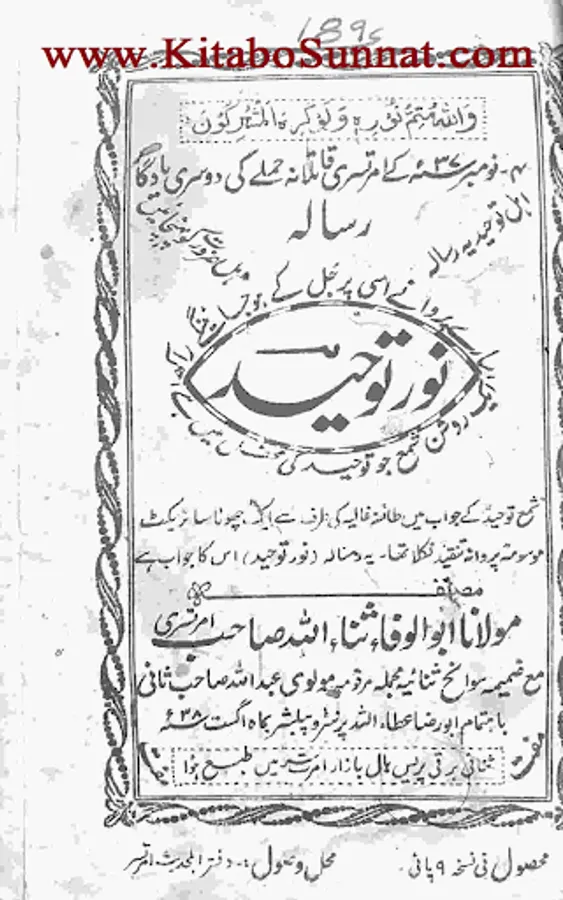 189
www.KitaboSunnat.com
وَاللّٰہُ مُتِمُّ نُوْرِہٖ وَلَوْ کَرِہَ الْمُشْرِکُوْنَ
۴۔ نومبر ۳۷ء کے امرتسری قاتلانہ حملے کی دوسری یادگار
رسالہ
اہل توحید یہ رسالہ
نور توحید
ایک روشن شمع جو توحید کی
شمع توحید کے جواب میں طائفہ غالیہ کی طرف سے ایک چھوٹا سا ٹریکٹ
موسومہ پروانہ تنقید نکلا تھا۔ یہ رسالہ (نور توحید) اس کا جواب ہے
مصنفہ
مولانا ابوالوفاء ثناء اللہ صاحب امرتسری
مع ضمیمہ سوانح ثنائیہ مجملہ مرقومہ مولوی عبداللہ صاحب ثانی
باہتمام ابورضا عطاء اللہ پرنٹر و پبلشر بماہ اگست ۳۸ء
مفت مفت
ثنائی برقی پریس ہال بازار امرتسر میں طبع ہوا
محصول فی نسخہ ۹ پائی
محل وصول:۔ دفتر اہلحدیث امرتسر